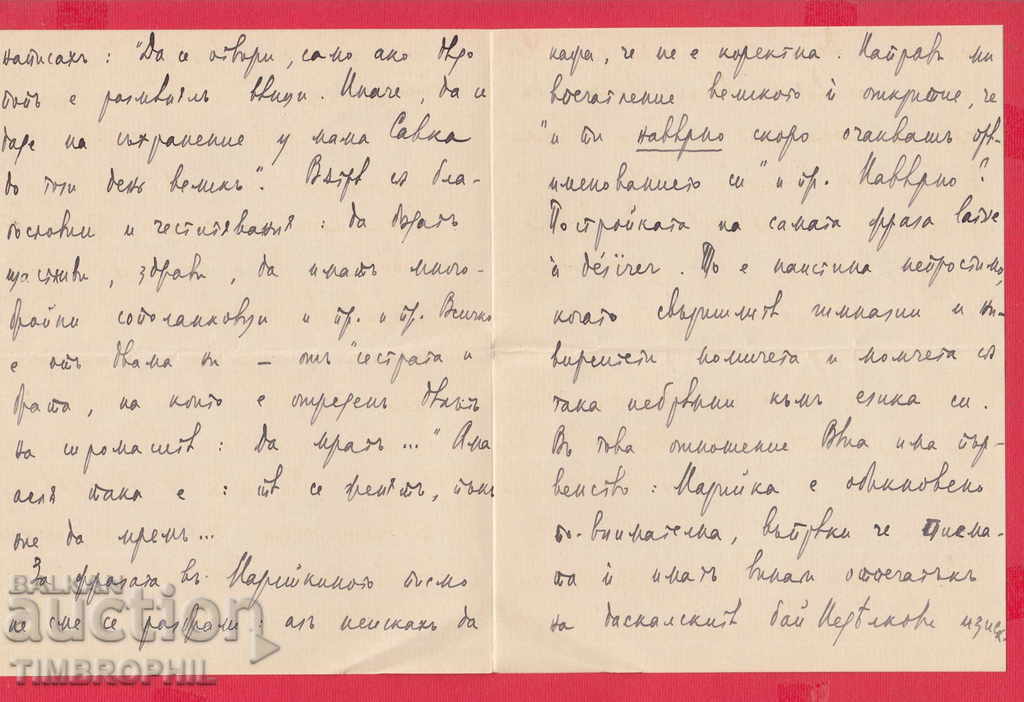 написахъ : "Да се отвори, само ако
е ... Иначе, да се
даде на съхранение у мама Савка
до този день великъ". Вѫтрѣ сѫ бла-
гословии и честитявания : да бѫдатъ
щастливи, здрави, да иматъ много-
бройни и пр. и пр. Всичко
е отъ двама ни — отъ "сестрата и
брата, на които е опредѣленъ дѣлътъ
на сиромаситѣ : да мратъ ..." Ама
така е : тѣ се женятъ,
ние да мремъ ...
За фразата въ Марийкиното писмо
не сме се разбрали : азъ неискахъ да
кажа, че не е коректна. Направи ми
впечатление великото ѝ открытие, че
"и ти навѣрно скоро очаквашъ
именованието си" и пр. Навѣрно?
Постройката на самата фраза laisse
à désirer. То е наистина непростимо,
когато свършилитѣ гимназии и уни-
верситети момичета и момчета сѫ
така небрѣжни къмъ езика си.
Въ това отношение Вѣна има пър-
венство : Марийка е обикновено
по-внимателна, въпрѣки че писма-
та ѝ иматъ винаги отпечатъкъ
на даскалскитѣ бай Недѣлкови изиск-
BALKAN
auction
TIMBROPHIL